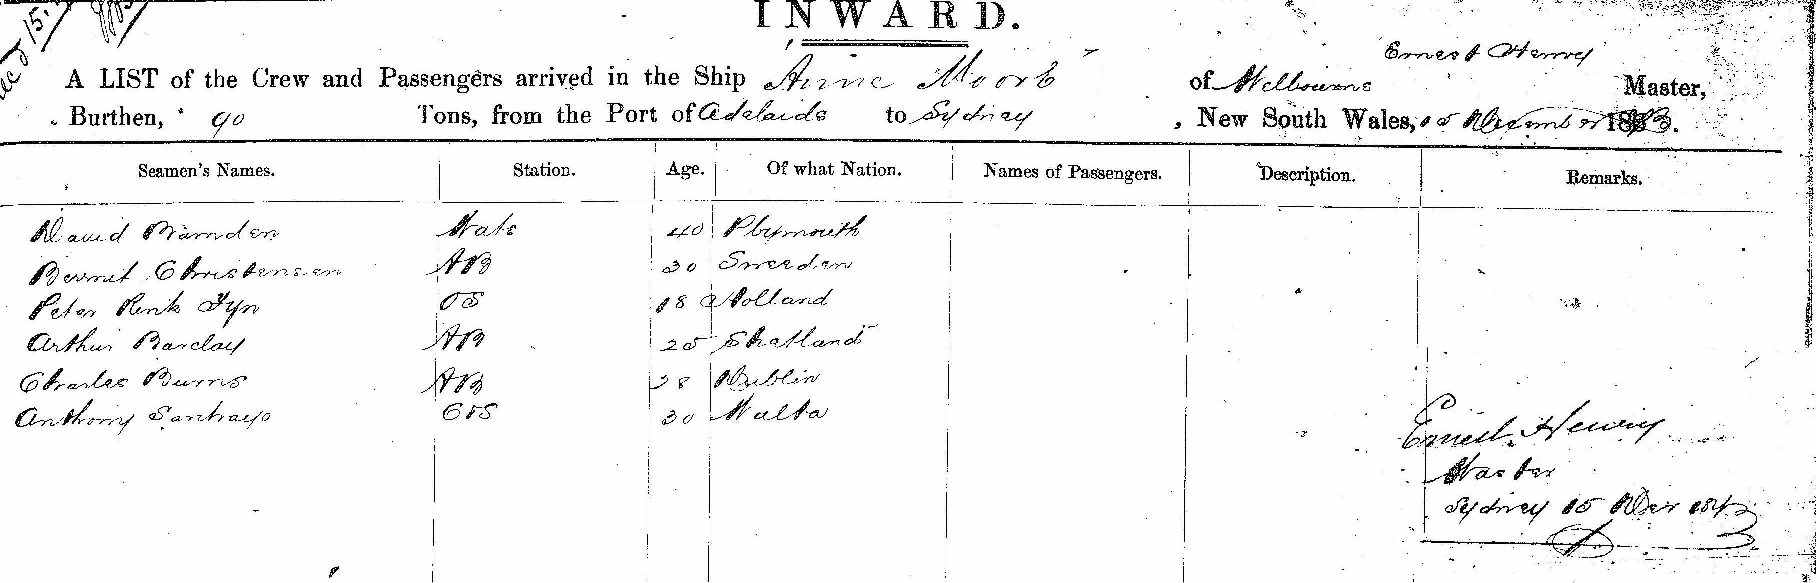 INWARD.
Ernest Henry
A LIST of the Crew and Passengers arrived in the Ship Anne Moore of Melbourne Master,
Burthen, 90 Tons, from the Port of Adelaide to Sydney, New South Wales, 15 December 18
Seamen's Names. Station. Age. Of what Nation. Names of Passengers. Description. Remarks.
David Mate 40 Plymouth
Christensen AB 30 Sweeden
Peter 0S 18 Holland
Arthur Barclay AB 25 Shetland
Charles Burns AB 28 Dublin
Anthony 30 Malta
Ernest Henry
Master
Sydney 15 Der